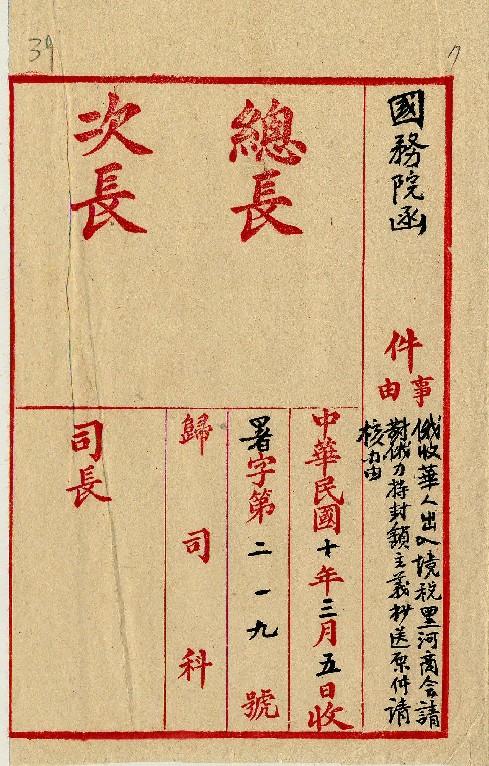 39
國務院函
件
事
由
俄收華人出入境稅黑河商会請
對俄力持封鎖主義抄送原件请
核办由
總長
次長
中華民國十年三月五日收
署字第二一九號
歸司科
司長